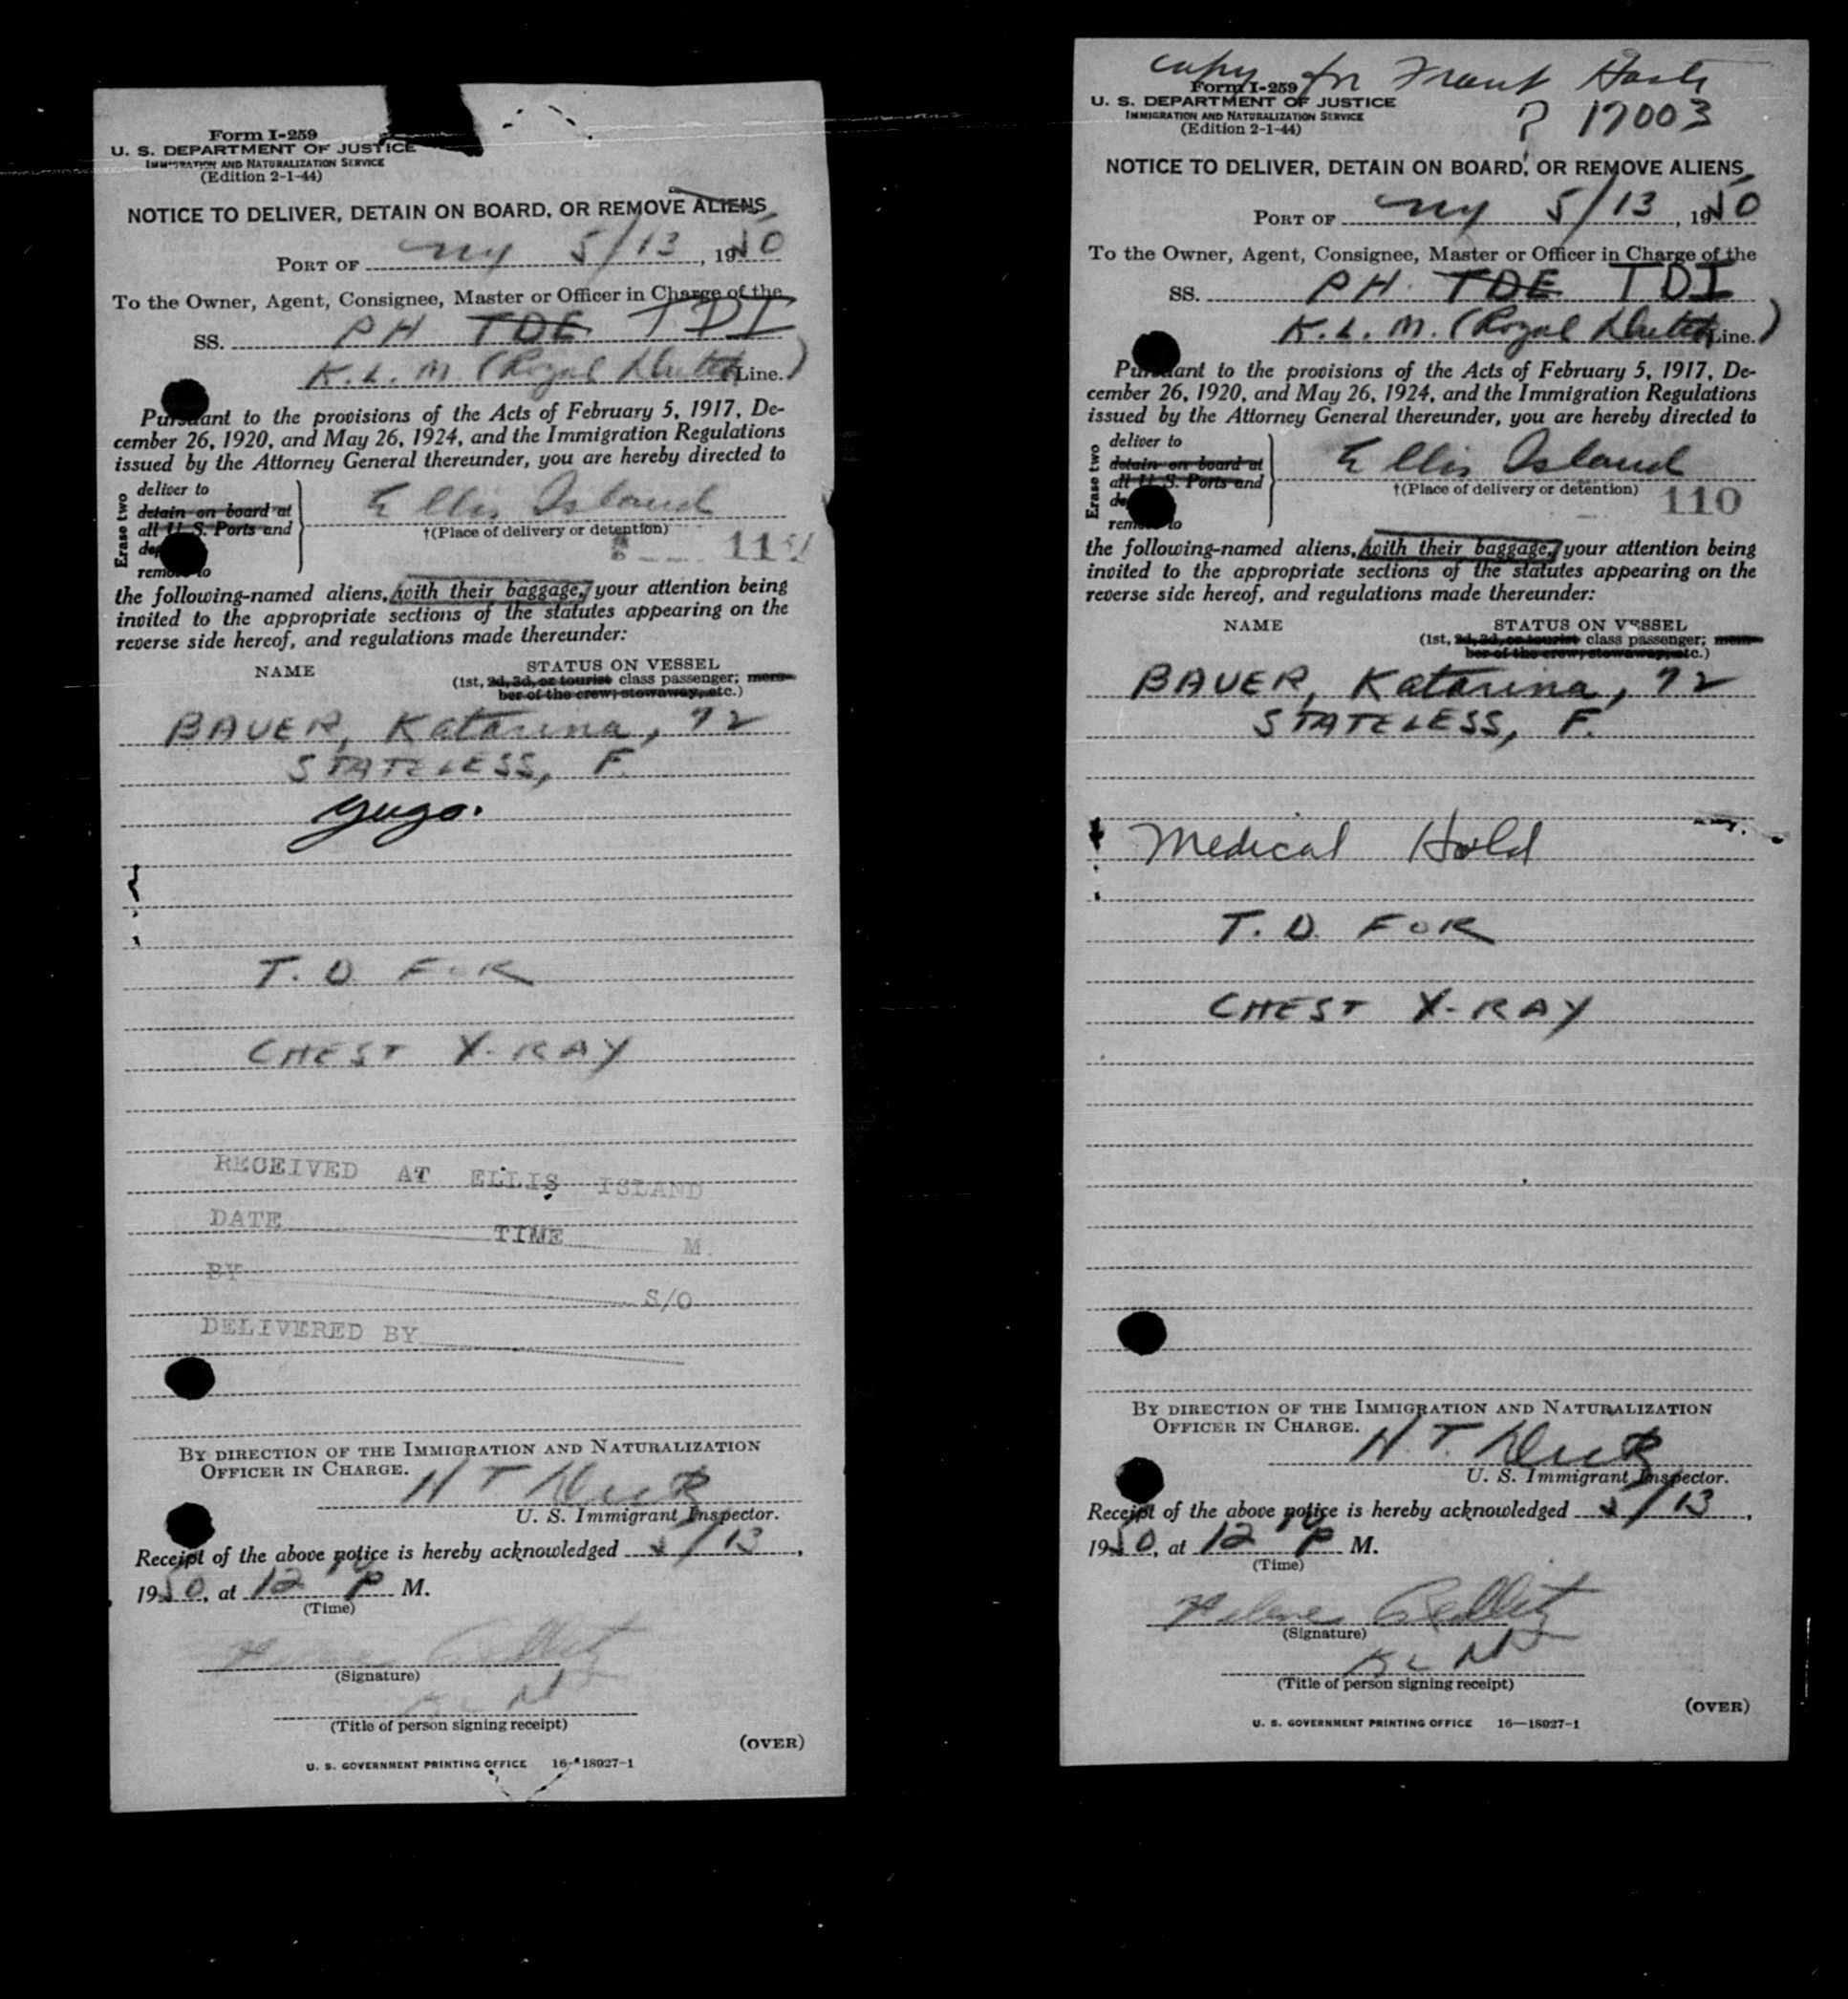 Form I-259
U. S. DEPARTMENT OF JUSTICE
IMMIGRATION AND NATURALIZATION SERVICE
(Edition 2-1-44)
NOTICE TO DELIVER, DETAIN ON BOARD, OR REMOVE ALIENS
PORT OF NY 5/13, 1950
To the Owner, Agent, Consignee, Master or Officer in Charge of the
SS. PH TDE TDI
K.L.M. (Royal Dutch Line.)
Pursuant to the provisions of the Acts of February 5, 1917, De-
cember 26, 1920, and May 26, 1924, and the Immigration Regulations
issued by the Attorney General thereunder, you are hereby directed to
Erase two
deliver to
detain on board at
all U. S. Ports and
remove to
Ellis Island
†(Place of delivery or detention)
the following-named aliens, with their baggage, your attention being
invited to the appropriate sections of the statutes appearing on the
reverse side hereof, and regulations made thereunder:
NAME STATUS ON VESSEL
(1st, 2d, 3d, or tourist class passenger; mem-
ber of the crew; stowaway, etc.)
BAUER, Katarina, 72
STATELESS, F.
Yugo.
T. D. FOR
CHEST X-RAY
RECEIVED AT ELLIS ISLAND
DATE TIME M.
BY S/O
DELIVERED BY
BY DIRECTION OF THE IMMIGRATION AND NATURALIZATION
OFFICER IN CHARGE.
H T
U. S. Immigrant Inspector.
Receipt of the above notice is hereby acknowledged 5/13,
1950, at 12 P M.
(Time)
(Signature)
KLM
(Title of person signing receipt)
(OVER)
U. S. GOVERNMENT PRINTING OFFICE 16-18927-1
copy for Frank
? 17003
Form I-259
U. S. DEPARTMENT OF JUSTICE
IMMIGRATION AND NATURALIZATION SERVICE
(Edition 2-1-44)
NOTICE TO DELIVER, DETAIN ON BOARD, OR REMOVE ALIENS
PORT OF NY 5/13, 1950
To the Owner, Agent, Consignee, Master or Officer in Charge of the
SS. PH. TDE TDI
K.L.M. (Royal Dutch Line.)
Pursuant to the provisions of the Acts of February 5, 1917, De-
cember 26, 1920, and May 26, 1924, and the Immigration Regulations
issued by the Attorney General thereunder, you are hereby directed to
Erase two
deliver to
detain on board at
all U. S. Ports and
remove to
Ellis Island
†(Place of delivery or detention)
110
the following-named aliens, with their baggage, your attention being
invited to the appropriate sections of the statutes appearing on the
reverse side hereof, and regulations made thereunder:
NAME STATUS ON VESSEL
(1st, 2d, 3d, or tourist class passenger; mem-
ber of the crew; stowaway, etc.)
BAUER, Katarina, 72
STATELESS, F.
Medical Hold
T. D. FOR
CHEST X-RAY
BY DIRECTION OF THE IMMIGRATION AND NATURALIZATION
OFFICER IN CHARGE.
H. T.
U. S. Immigrant Inspector.
Receipt of the above notice is hereby acknowledged 5/13,
1950, at 12 P M.
(Time)
(Signature)
KLM
(Title of person signing receipt)
(OVER)
U. S. GOVERNMENT PRINTING OFFICE 16—18927-1